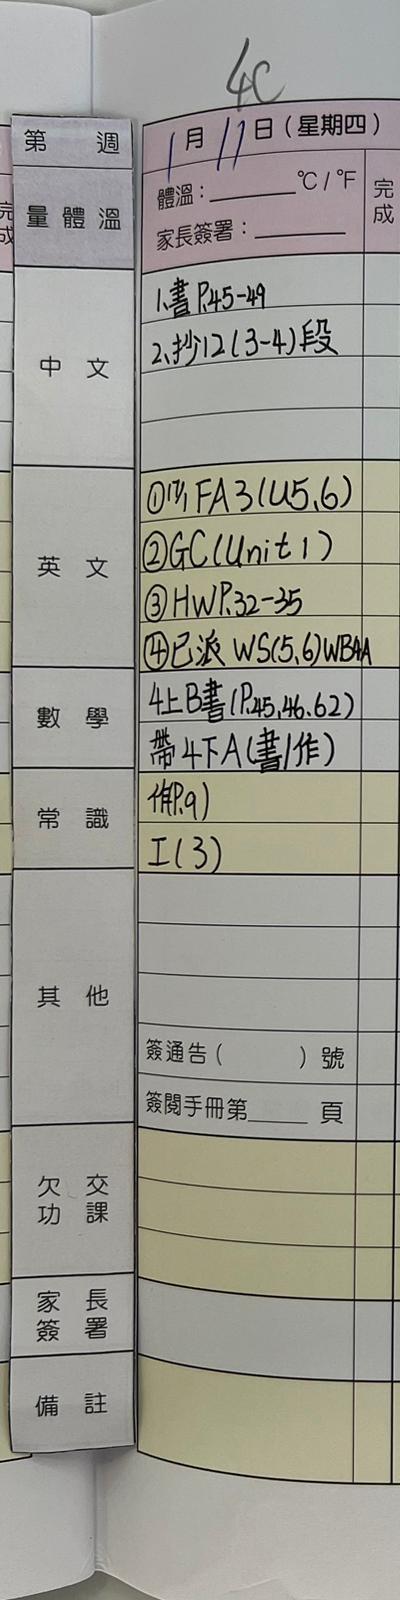 4C
第 週
1月11日(星期四)
量體溫
體溫：______℃/℉
完成
家長簽署：______
中文
1.書P.45-49
2.抄12(3-4)段
英文
①改FA3(U5,6)
②GC(Unit 1)
③HWP.32-35
④已派 WS(5,6)WB4A
數學
4上B書(P.45,46,62)
帶4下A(書/作)
常識
作(P.9)
I(3)
其他
簽通告( )號
簽閱手冊第____頁
欠交功課
家長簽署
備註